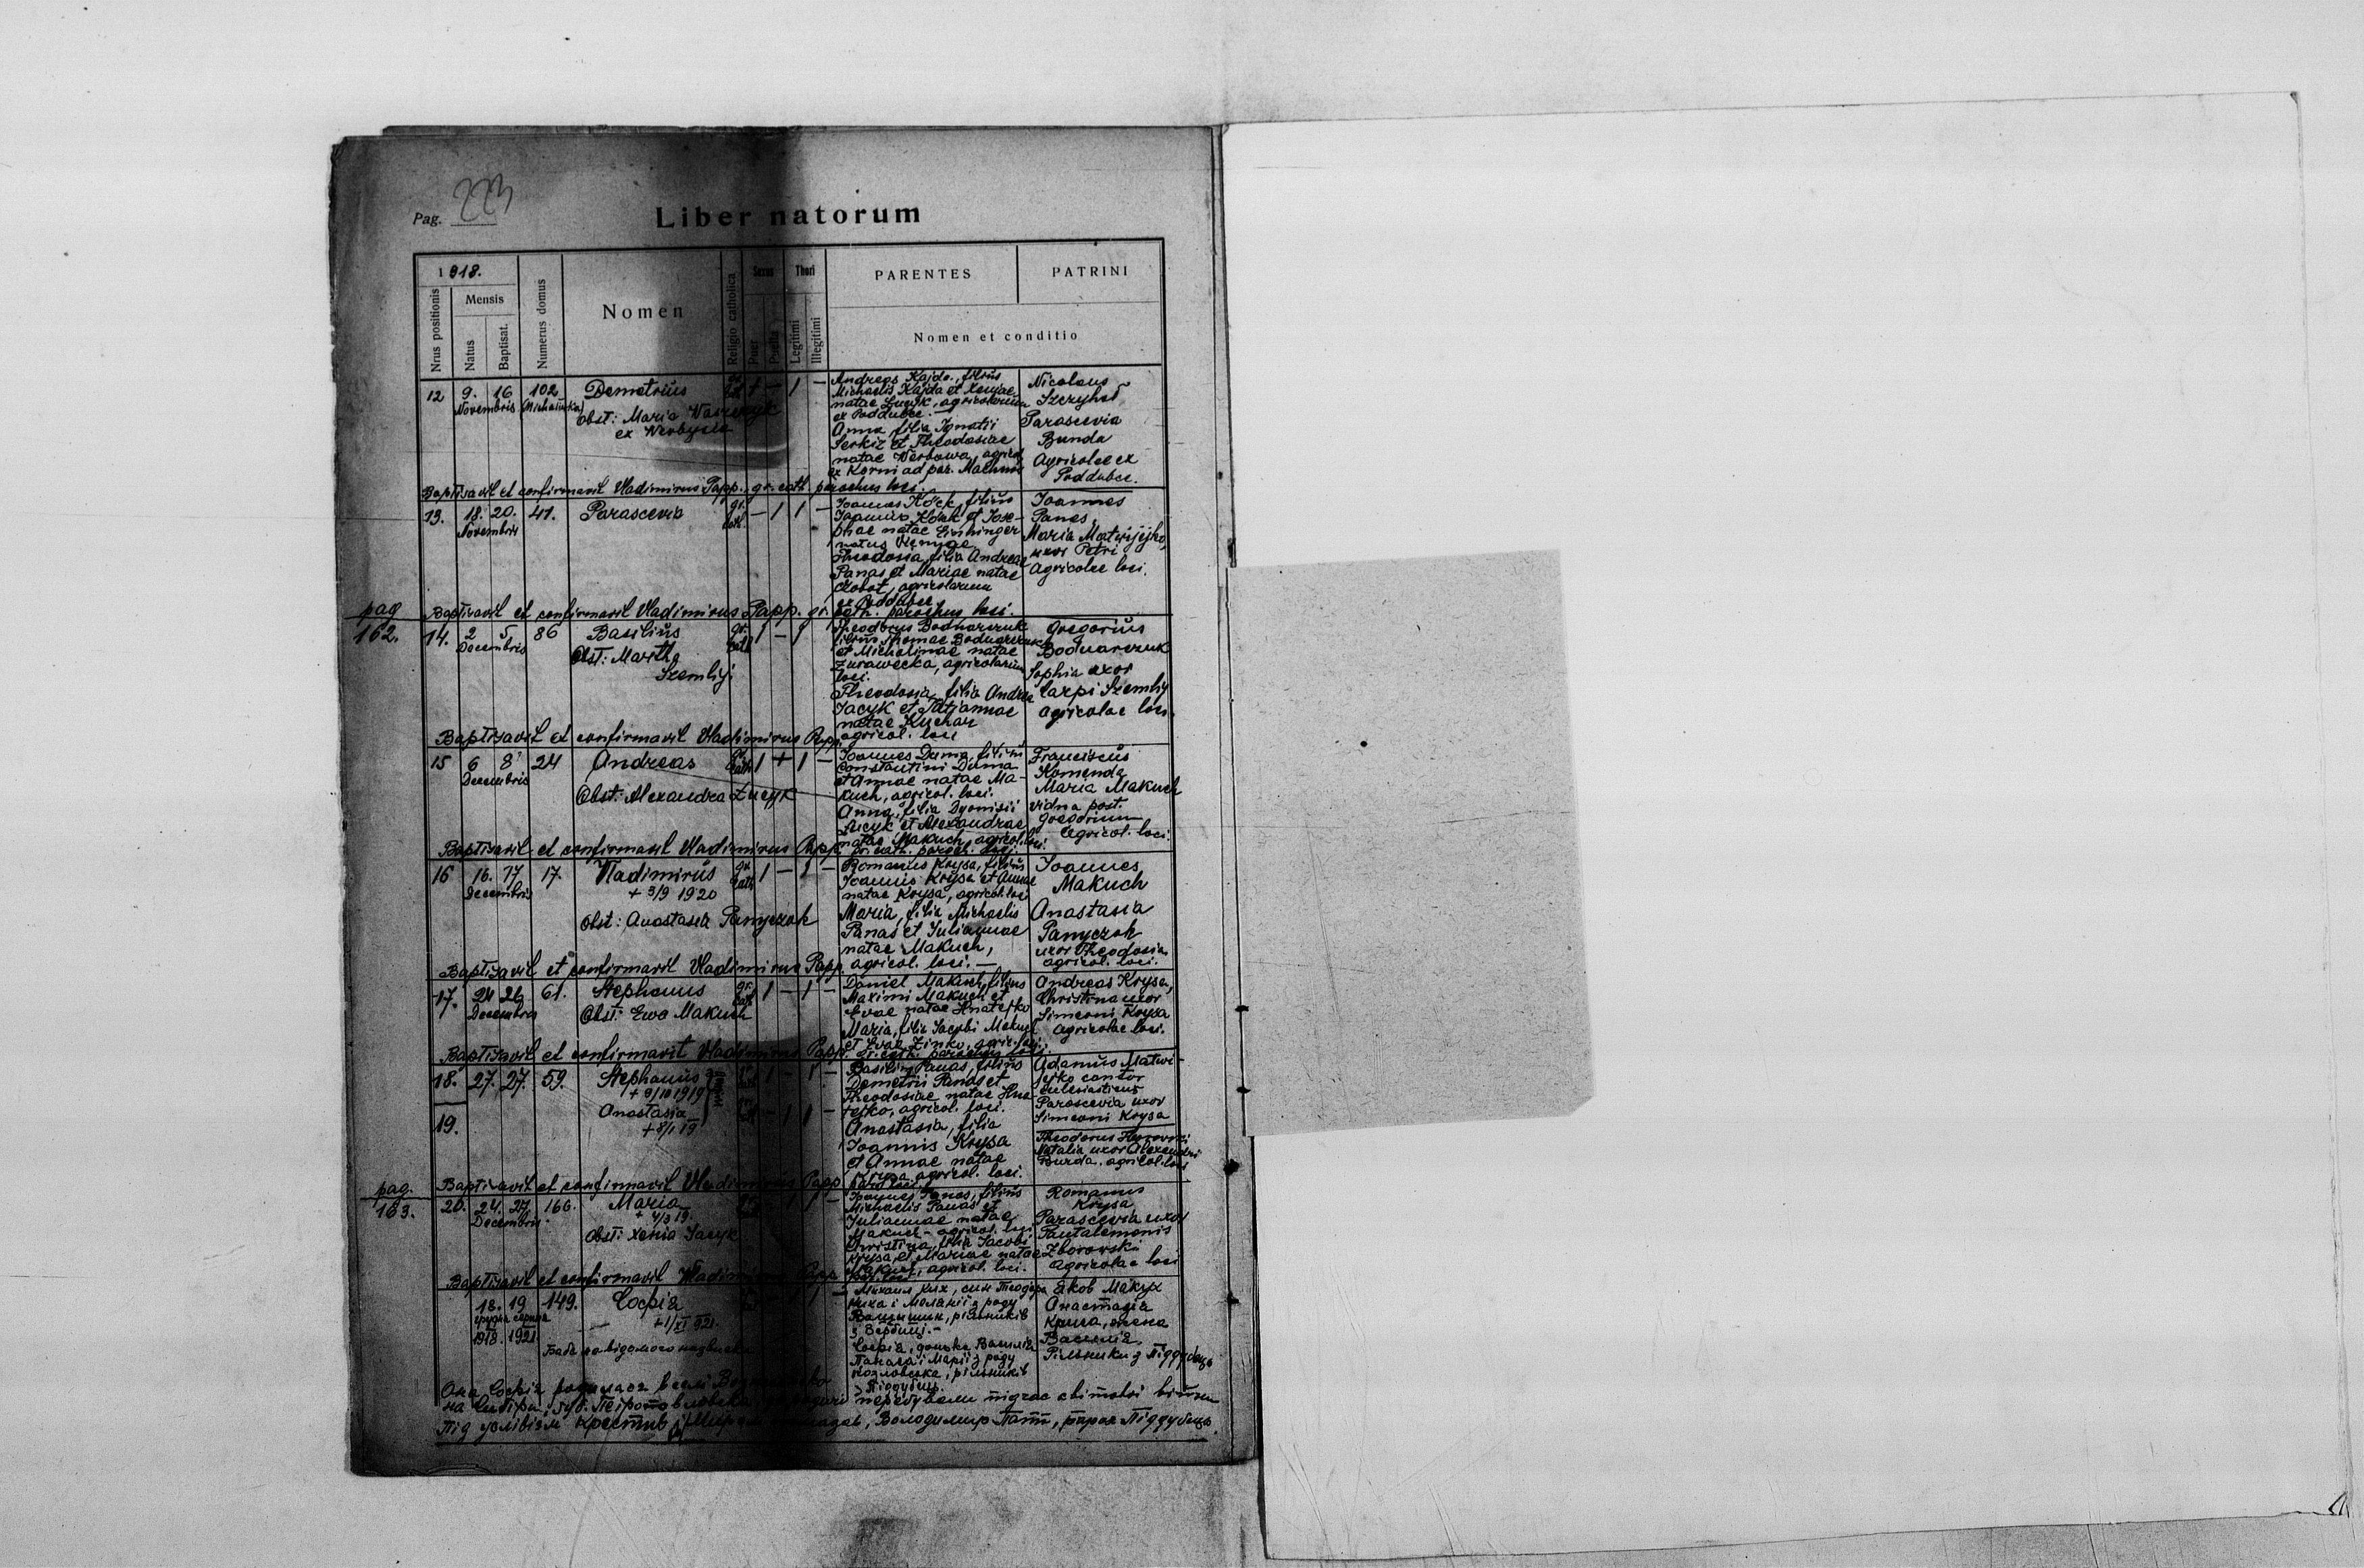 Pag. 223
Liber natorum
1918.
Nrus positionis
Mensis
Natus
Baptisat.
Numerus domus
Nomen
Religio catholica
Sexus
Puer
Puella
Thori
Legitimi
Illegitimi
PARENTES
PATRINI
Nomen et conditio
12 9. 16 102 Demetrius
Novembris (Michałówka)
Obst: Maria
ex Werbycia
Andreas Kajda, filius
Michaelis Kajda et Xeniae
natae Łucyk, agricolarum
ex Poddubce.
Anna filia Ignatii
Serkiz et Theodosiae
natae Werbowa, agricol.
ex Korni ad par. Machnów
Nicolaus
Szczyhol
Parascevia
Bunda
Agricolae ex
Poddubce.
Baptisavit et confirmavit Vladimirus Papp. gr. cath. parochus loci.
13. 18. 20. 41. Parascevia gr. cath. — 1 1 —
Novembris
Joannes Köck, filius
Joannis Köck et Jose-
phae natae Einhinger
natus Viennae
Theodosia, filia Andreae
Panas et Mariae natae
agricolarum
ex Poddubce
Joannes
Panas,
Maria Matwijejko,
uxor Petri
Agricolae loci.
Baptisavit et confirmavit Vladimirus Papp. gr. cath. parochus loci.
pag
162.
14. 2 5. 86 Basilius gr. cath 1 — 1
Decembris
Obst: Martha
Szemlij
Theodorus Bodnarczuk
filius Thomae Bodnarczuk
et Michalinae natae
Żurawecka, agricolarum
loci.
Theodosia, filia Andreae
Jacyk et Tatjannae
natae Kuchar
agricol. loci
Gregorius
Bodnarczuk
Sophia uxor
Carpi Szemlij
agricolae loci.
Baptisavit et confirmavit Vladimirus Papp.
15 6 8 24 Andreas 1 + 1 —
Decembris
Obst: Alexandra Łucyk
Joannes Duma, filius
Constantini Duma
et Annae natae Ma-
kuch, agricol. loci.
Anna, filia Dyonisii
Łucyk et Alexandrae
natae Makuch agricol. loci.
Franciscus
Komenda
Maria Makuch
vidua post.
Gregorium
Agricol. loci.
Baptisavit et confirmavit Vladimirus Papp gr. cath. paroch. loci.
16 16. 17. 17. Vladimirus gr. cath 1 — 1 —
Decembris + 3/9 1920
Obst: Anastasia Panyczok
Romanus Krysa, filius
Joannis Krysa et Annae
natae Krysa, agricol. loci
Maria, filia Michaelis
Panas et Juliannae
natae Makuch,
agricol. loci. —
Joannes
Makuch
Anastasia
Panyczok
uxor Theodosia
agricol. loci.
Baptisavit et confirmavit Vladimirus Papp
17. 24 26 61. Stephanus gr. cath 1 — 1 —
Decembris
Obst: Ewa Makuch
Daniel Makuch, filius
Maximi Makuch et
Evae natae Hnatejko
Maria, filia Jacobi Makuch
et Evae Zinko, agric. loci.
Andreas Krysa,
Christina uxor
Simeoni Krysa
Agricolae loci.
Baptisavit et confirmavit Vladimirus Papp. gr. cath. parochus loci.
18. 27. 27. 59. Stephanus 1 - 1 —
+ 8/10 1919
19. Anastasia — 1 1 —
+ 8/1 19
Basilius Panas, filius
Demetrii Panas et
Theodosiae natae Hna-
tejko, agricol. loci.
Anastasia, filia
Joannis Krysa
et Annae natae
Krysa agricol. loci.
Adamus Matwi-
jejko cantor
ecclesiasticus
Parascevia uxor
Simeoni Krysa
Theodorus
Natalia uxor Alexandri
Burda. agricol. loci
Baptisavit et confirmavit Vladimirus Papp par. loci.
pag.
163.
20. 24. 27. 166. Maria
Decembris. + 4/3 19.
Obst: Xenia Jacyk
Joannes Panas, filius
Michaelis Panas et
Juliannae natae
Makuch - agricol. loci
Christina, filia Jacobi
Krysa et Mariae natae
Makuch, agricol. loci.
Romanus
Krysa
Parascevia uxor
Pantalemonis
Zborowski
Agricolae loci
Baptisavit et confirmavit Vladimirus Papp par. loci
18. 19 149. Софія
грудня серпня + 1/XI 921.
1918. 1921.
Баба не відомого
Михаил Ких, син Теодора
Киха і Меланії з роду
Волишин, рільників
з Вербиці. -
Софія, донька Василія
Панаса і Марії з роду
Козловська, рільників
з Піддубець.
Яков Макух
Анастазія
Криса, жена
Василія,
Рільники з Піддубець
Она Софія родилася в селі
на Сибірі, губ. перебували підчас світової війни
Під услівієм крестив і Миром Володимир Папп, парох Піддубець.